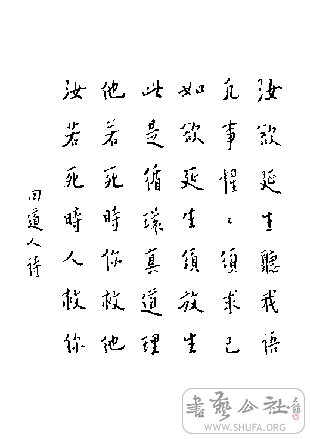 汝欲延生聽我語
凡事惺〻須求己
如欲延生須放生
此是循環真道理
他若死時你救他
汝若死時人救你
回道人詩
書藝公社
WWW.SHUFA.ORG